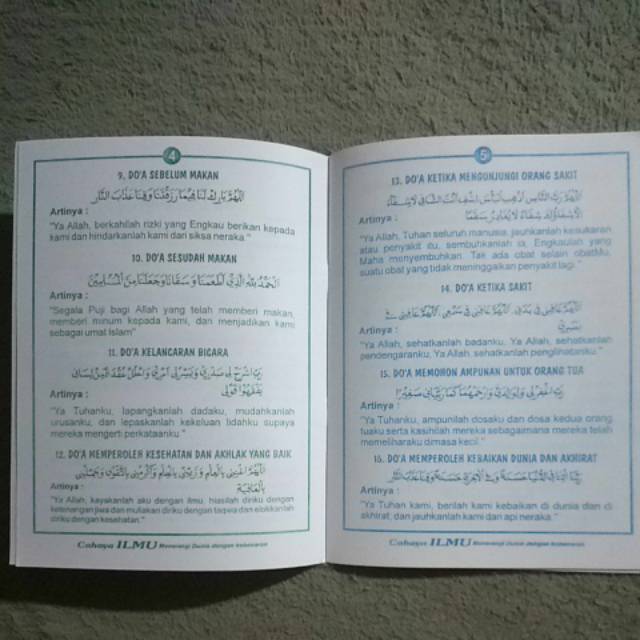 4
9. DO'A SEBELUM MAKAN
اَللّٰهُمَّ بَارِكْ لَنَا فِيْمَا رَزَقْتَنَا وَقِنَا عَذَابَ النَّارِ
Artinya :
"Ya Allah, berkahilah rizki yang Engkau berikan kepada
kami dan hindarkanlah kami dari siksa neraka."
10. DO'A SESUDAH MAKAN
اَلْحَمْدُ لِلّٰهِ الَّذِيْ اَطْعَمَنَا وَسَقَانَا وَجَعَلَنَا مِنَ الْمُسْلِمِيْنَ
Artinya :
"Segala Puji bagi Allah yang telah memberi makan,
memberi minum kepada kami, dan menjadikan kami
sebagai umat Islam"
11. DO'A KELANCARAN BICARA
رَبِّ اشْرَحْ لِيْ صَدْرِيْ وَيَسِّرْ لِيْ اَمْرِيْ وَاحْلُلْ عُقْدَةً مِنْ لِسَانِيْ
يَفْقَهُوْا قَوْلِيْ
Artinya :
"Ya Tuhanku, lapangkanlah dadaku, mudahkanlah
urusanku, dan lepaskanlah kekeluan lidahku supaya
mereka mengerti perkataanku."
12. DO'A MEMPEROLEH KESEHATAN DAN AKHLAK YANG BAIK
Artinya :
"Ya Allah, kayakanlah aku dengan ilmu, hiasilah diriku dengan
ketenangan jiwa dan muliakan diriku dengan taqwa dan elokkanlah
diriku dengan kesehatan."
Cahaya ILMU Menerangi Dunia dengan kebenaran
5
13. DO'A KETIKA MENGUNJUNGI ORANG SAKIT
Artinya :
"Ya Allah, Tuhan seluruh manusia, jauhkanlah kesukaran
atau penyakit itu, sembuhkanlah ia, Engkaulah yang
Maha menyembuhkan. Tak ada obat selain obatMu,
suatu obat yang tidak meninggalkan penyakit lagi."
14. DO'A KETIKA SAKIT
Artinya :
"Ya Allah, sehatkanlah badanku, Ya Allah, sehatkanlah
pendengaranku, Ya Allah, sehatkanlah penglihatanku."
15. DO'A MEMOHON AMPUNAN UNTUK ORANG TUA
Artinya :
"Ya Tuhanku, ampunilah dosaku dan dosa kedua orang
tuaku serta kasihilah mereka sebagaimana mereka telah
memeliharaku dimasa kecil."
16. DO'A MEMPEROLEH KEBAIKAN DUNIA DAN AKHIRAT
Artinya :
"Ya Tuhan kami, berilah kami kebaikan di dunia dan di
akhirat, dan jauhkanlah kami dari api neraka."
Cahaya ILMU Menerangi Dunia dengan kebenaran